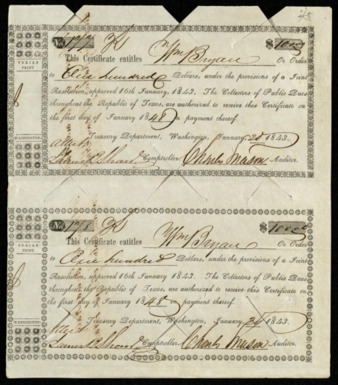 This Certificate entitles Wm Bryan Or Order
to Five hundred Dollars, under the provisions of a Joint
Resolution, approved 16th January, 1843. The Collectors of Public Dues
throughout the Republic of Texas, are authorized to receive this Certificate on
the first day of January 1848 in payment thereof.
Treasury Department, Washington, January 28 1843.
Attest
James B. Shaw Comptroller Charles Mason Auditor.
This Certificate entitles Wm Bryan Or Order
to Five hundred Dollars, under the provisions of a Joint
Resolution, approved 16th January, 1843. The Collectors of Public Dues
throughout the Republic of Texas, are authorized to receive this Certificate on
the first day of January 1848 in payment thereof.
Treasury Department, Washington, January 1843.
Attest
James B. Shaw Comptroller Charles Mason Auditor.